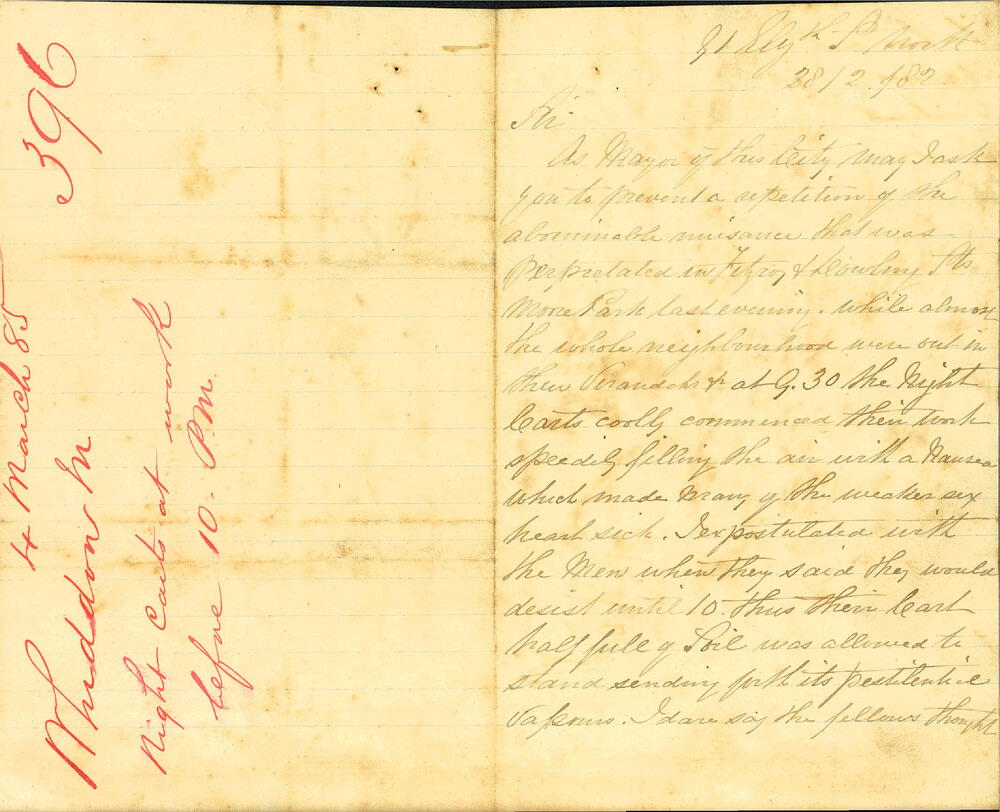 396
4 March 85
Wheddon M
Night Carts at work
before 10. P.M.
91 Elizth St North
28/2/82
Sir
As Mayor of this City may I ask
you to prevent a repetition of the
abominable nuisance that was
perpretated in Fitzroy & Dowling Sts
Moore Park last evening. while almost
the whole neighbourhood were out in
their Verandahs & at 9.30 the Night
Carts coolly commenced their work
speedily filling the air with a Nausea
which made many of the weaker sex
heart sick. I expostulated with
the Men when they said they would
desist until 10 thus their Cart
half full of Soil was allowed to
stand sending forth its pestilential
Vapours. I dare say the fellows thought